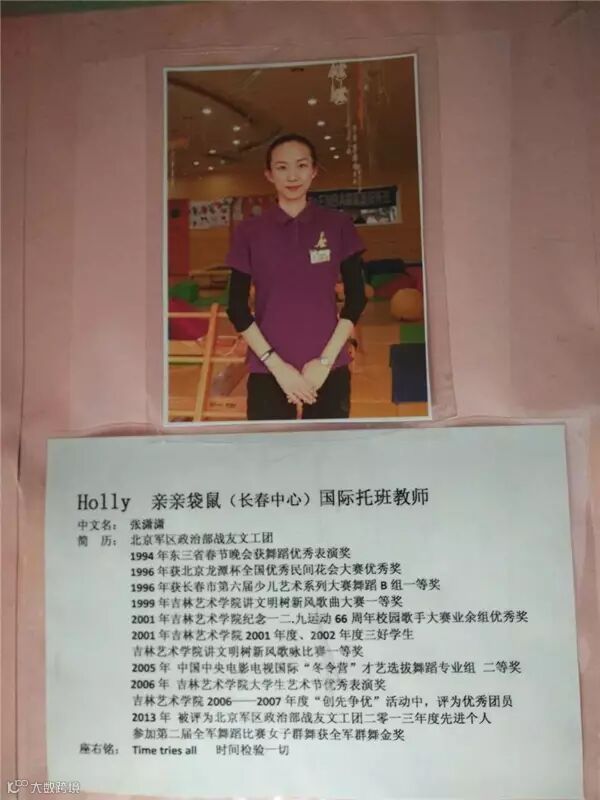 Holly 亲亲袋鼠（长春中心）国际托班教师
中文名： 张潇潇
简 历： 北京军区政治部战友文工团
1994年东三省春节晚会获舞蹈优秀表演奖
1996年获北京龙潭杯全国优秀民间花会大赛优秀奖
1996年获长春市第六届少儿艺术系列大赛舞蹈B组一等奖
1999年吉林艺术学院讲文明树新风歌曲大赛一等奖
2001年吉林艺术学院纪念一二.九运动66周年校园歌手大赛业余组优秀奖
2001年吉林艺术学院2001年度、2002年度三好学生
吉林艺术学院讲文明树新风歌咏比赛一等奖
2005年 中国中央电影电视国际“冬令营”才艺选拔舞蹈专业组 二等奖
2006年 吉林艺术学院大学生艺术节优秀表演奖
吉林艺术学院2006——2007年度“创先争优”活动中，评为优秀团员
2013年 被评为北京军区政治部战友文工团二零一三年度先进个人
参加第二届全军舞蹈比赛女子群舞获全军群舞金奖
座右铭： Time tries all 时间检验一切
大数跨境